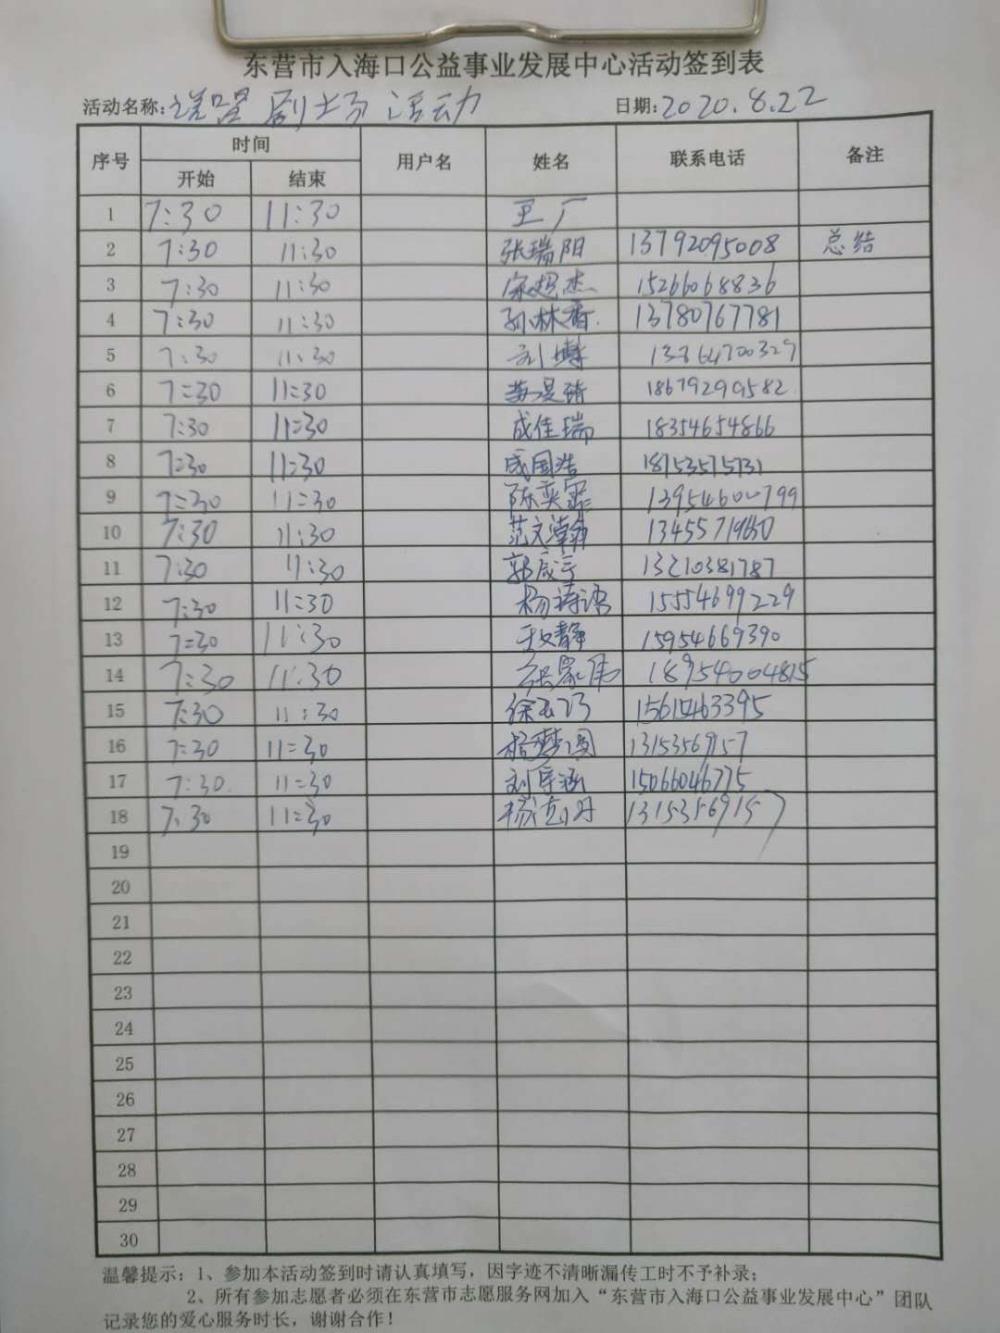 东营市入海口公益事业发展中心活动签到表
活动名称: 剧场活动 日期: 2020.8.22
序号 时间 用户名 姓名 联系电话 备注
开始 结束
1 7:30 11:30 王厂
2 7:30 11:30 张瑞阳 13792095008 总结
3 7:30 11:30 宋超杰 15266068836
4 7:30 11:30 孙林香 13780767781
5 7:30 11:30 刘博
6 7:30 11:30 18679299582
7 7:30 11:30 成佳瑞 18354654866
8 7:30 11:30 成国浩 18753575731
9 7:30 11:30 陈奕霏 13954600799
10 7:30 11:30 范文瀚
11 7:30 11:30 郭成宇 13210381787
12 7:30 11:30 杨诗语 15554699229
13 7:30 11:30 王文静 15954669390
14 7:30 11:30 张家伟 18954004815
15 7:30 11:30 15615463395
16 7:30 11:30 杨梦圆 13153569157
17 7:30 11:30 刘宇涵 15066046775
18 7:30 11:30 13153569157
19
20
21
22
23
24
25
26
27
28
29
30
温馨提示：1、参加本活动签到时请认真填写，因字迹不清晰漏传工时不予补录；
2、所有参加志愿者必须在东营市志愿服务网加入“东营市入海口公益事业发展中心”团队
记录您的爱心服务时长，谢谢合作！